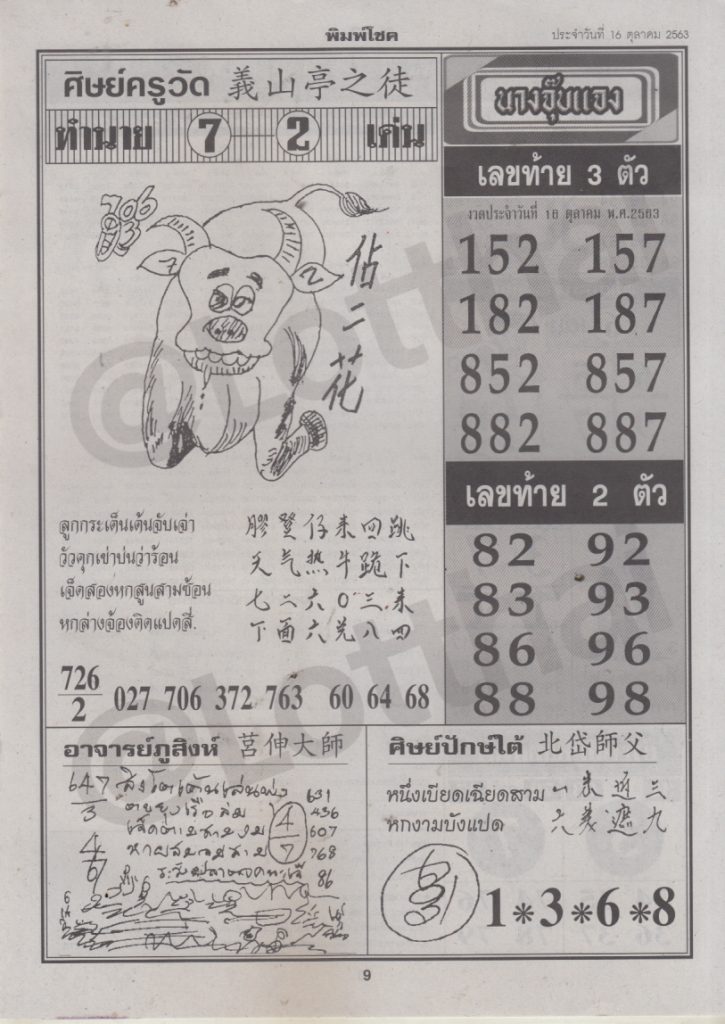 พิมพ์โชค
ประจำวันที่ 16 ตุลาคม 2563
ศิษย์ครูวัด 義山亭之徒
ทำนาย 7—2 เด่น
706
93
7
2
佔二花
ลูกกระเด็นเด้นจับเจ่า
วัวคุกเข่าบ่นว่าร้อน
เจ็ดสองหกสูนสามซ้อน
หกล่างจ้องติดแปดสี่.
膠聖仔来四跳
天气热牛跪下
七二六0三来
下面六兑八四
726
2
027 706 372 763 60 64 68
นางจุ๊บแจง
เลขท้าย 3 ตัว
งวดประจำวันที่ 16 ตุลาคม พ.ศ.2563
152 157
182 187
852 857
882 887
เลขท้าย 2 ตัว
82 92
83 93
86 96
88 98
อาจารย์ภูสิงห์ 莒伸大師
647
3
4
6
สิงโตเต้นเล่นพ่ง
4
7
631
436
607
768
86
ศิษย์ปักษ์ใต้ 北岱師父
หนึ่งเบียดเฉียดสาม
หกงามบังแปด
1*3*6*8
9
@Lotthai
@Lotthai